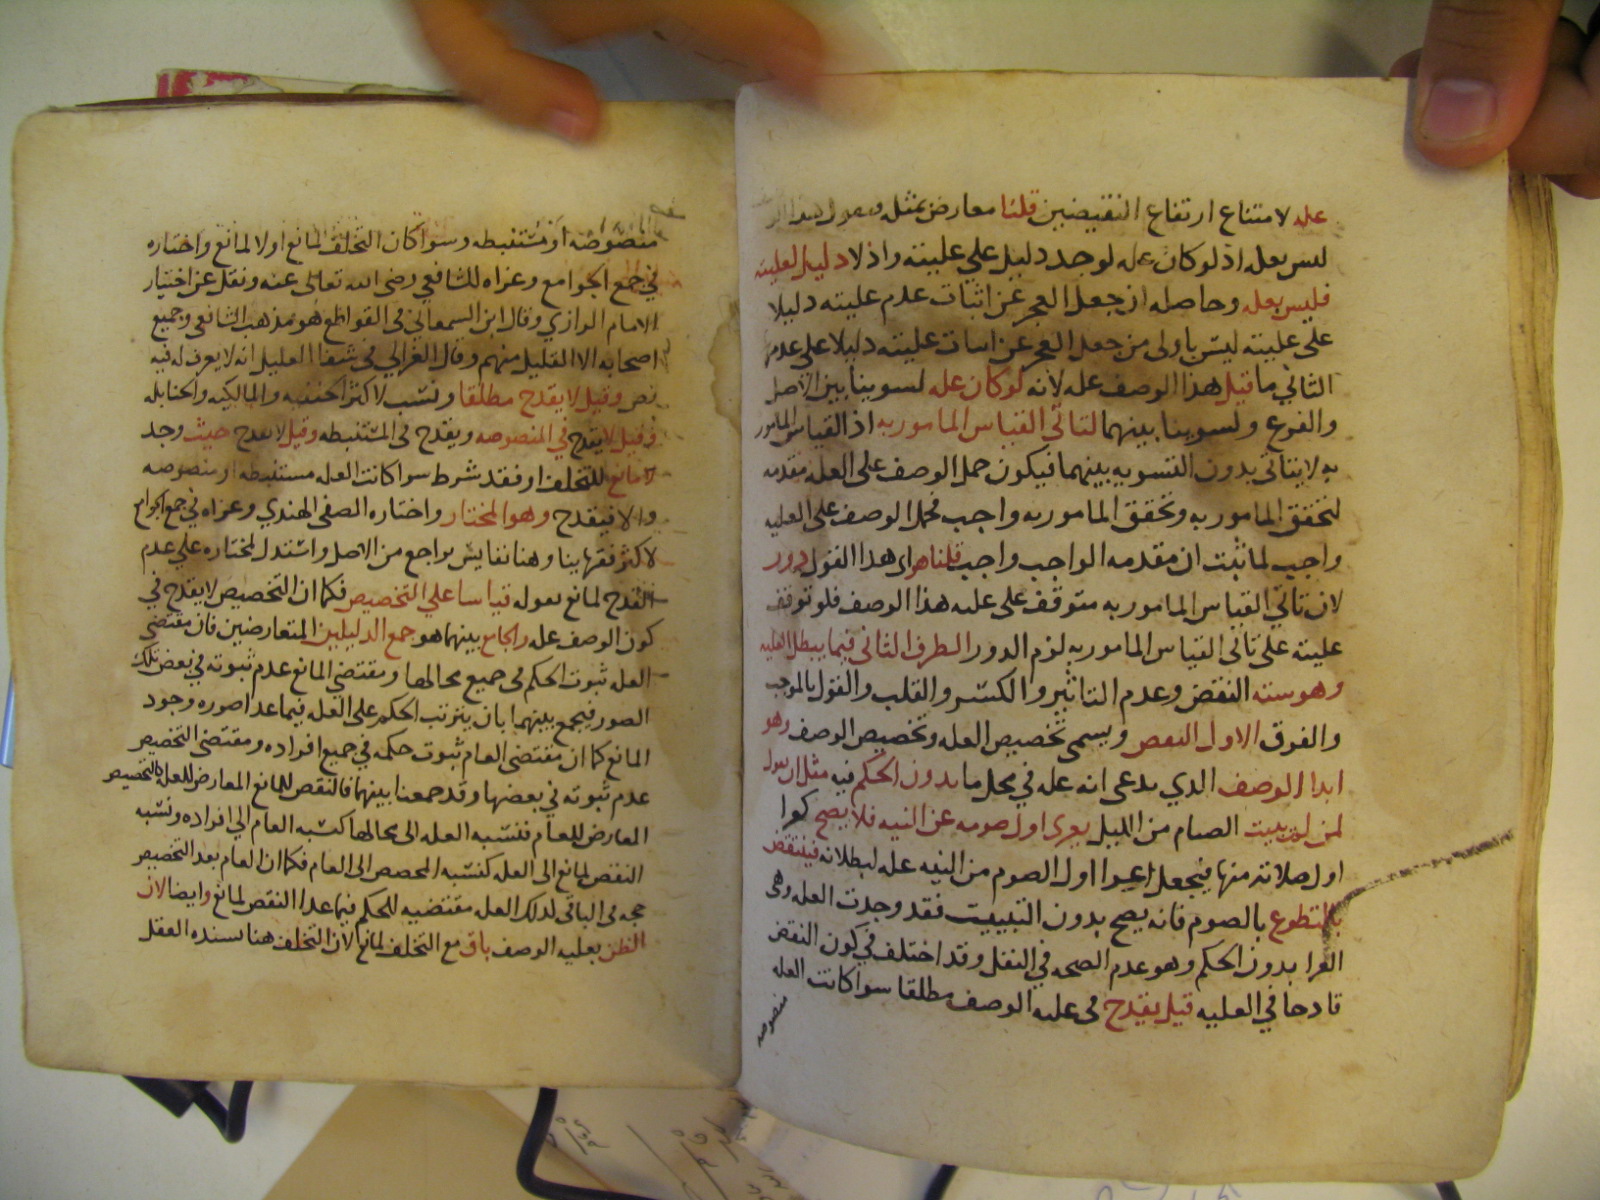 عله لامتناع ارتفاع النقيضين قلنا معارض بمثله
ليس بعله اذ لو كان عله لوجد دليل على عليته واذ لا دليل لعليته
فليس بعله وحاصله ان جعل العجز عن اثبات عدم عليته دليلا
على عليته ليس باولى من جعل العجز عن اثبات عليته دليلا على عدمها
الثاني ما قيل هذا الوصف عله لانه لو كان عله لسوينا بين الاصل
والفرع ولسوينا بينهما لتاتي القياس المامور به اذ القياس المامور
به لا يتاتى بدون التسويه بينهما فيكون حمل الوصف على العله مقدمه
لتحقق المامور به وتحقق المامور به واجب فحمل الوصف على العليه
واجب لما ثبت ان مقدمه الواجب واجب قلنا هو اى هذا القول دور
لان تاتي القياس المامور به متوقف على عليه هذا الوصف فلو توقف
عليته على تاتى القياس المامور به لزم الدور الطرف الثانى فيما يبطل العليه
وهو سته النقض وعدم التاثير والكسر والقلب والقول بالموجب
والفرق الاول النقض ويسمى تخصيص العله وتخصيص الوصف وهو
ابدا الوصف الذي يدعى انه عله في محل ما بدون الحكم فيه مثل ان يقول
لمن لم يبيت الصيام من الليل يعرى اول صومه عن النيه فلا يصح كعرا
اول صلاته منها فيجعل اعرا اول الصوم من النيه عله لبطلانه فينتقض
بالتطوع بالصوم فانه يصح بدون التبييت فقد وجدت العله وهى
العرا بدون الحكم وهو عدم الصحه في النفل وقد اختلف في كون النقض
قادحا في العليه قيل يقدح فى عليه الوصف مطلقا سوا كانت العله
منصوصه
منصوصه او مستنبطه وسوا كان التخلف لمانع او لا لمانع واختاره
في جمع الجوامع وعزاه للشافعي رضى الله تعالى عنه ونقل عن اختيار
الامام الرازي وقال ابن السمعاني فى القواطع هو مذهب الشافعى وجميع
اصحابه الا القليل منهم وقال الغزالي فى شفا العليل انه لا يعرف له فيه
نص وقيل لا يقدح مطلقا ونسب لاكثر الحنفيه والمالكيه والحنابله
وقيل لا يقدح في المنصوصه ويقدح فى المستنبطه وقيل لا يقدح حيث وجد
مانع للتخلف او فقد شرط سوا كانت العله مستنبطه او منصوصه
والا فيقدح وهو المختار واختاره الصفى الهندي وعزاه في جمع الجوامع
لاكثر فقهاينا وهنا نفايس يراجع من الاصل واستدل لمختاره على عدم
القدح لمانع بقوله قياسا على التخصيص فكما ان التخصيص لا يقدح في
كون الوصف عله والجامع بينهما هو جمع الدليلين المتعارضين فان مقتضى
العله ثبوت الحكم فى جميع محالها ومقتضى المانع عدم ثبوته في بعض تلك
الصور فيجمع بينهما بان يترتب الحكم على العله فيما عدا صوره وجود
المانع كما ان مقتضى العام ثبوت حكمه في جميع افراده ومقتضى التخصيص
عدم ثبوته في بعضها وقد جمعنا بينهما فالنقض للمانع المعارض للعله كالتخصيص
المعارض للعام فنسبه العله الى محالها كنسبه العام الي افراده ونسبه
النقض لمانع الى العله كنسبه المخصص الى العام فكما ان العام بعد التخصيص
حجه فى الباقى لذلك العله مقتضيه للحكم فيما عدا النقض لمانع وايضا لان
الظن بعليه الوصف باق مع التخلف لمانع لان التخلف هنا يسنده العقل